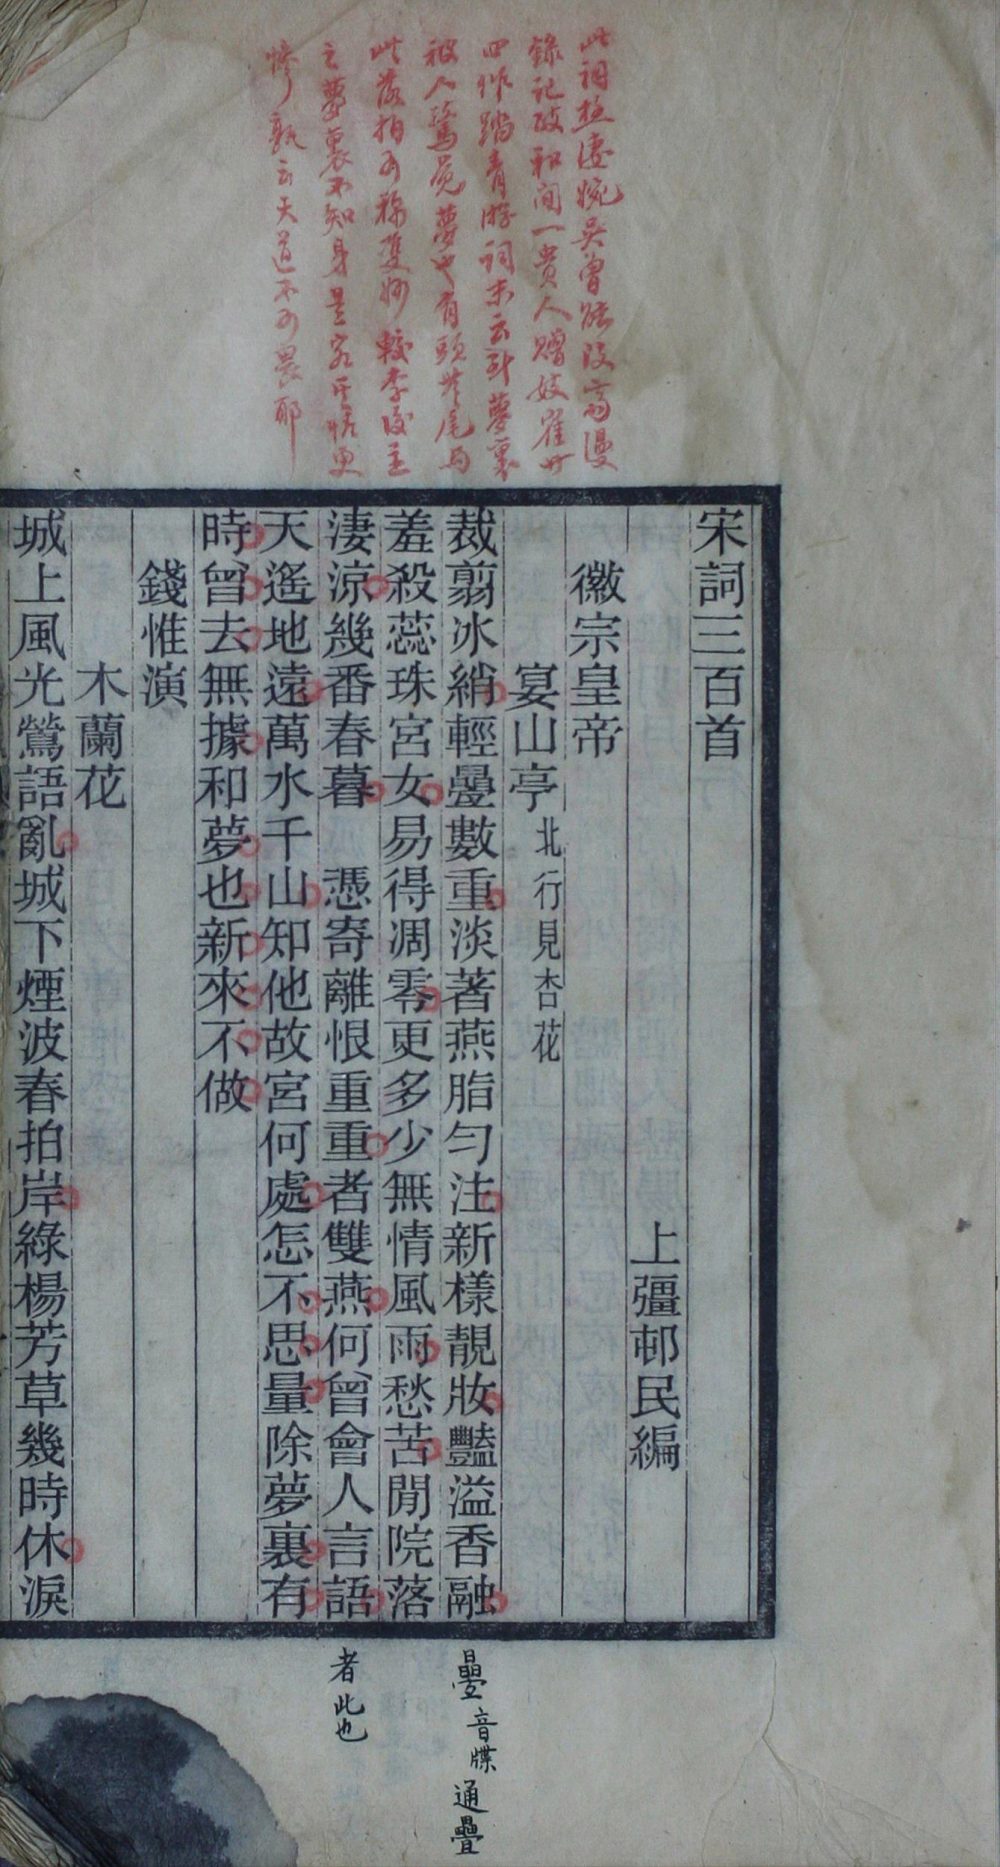 此詞極淒婉吳曾能改齋漫
錄記政和間一貴人贈妓崔廿
四作踏青游詞末云到夢裏
被人驚覺夢也有頭無尾與
此歇拍可稱雙妙較李後主
之夢裏不知身是客其情更
慘孰云天道不可畏耶
宋詞三百首
上彊邨民編
徽宗皇帝
宴山亭北行見杏花
裁翦冰綃輕疊數重淡著燕脂勻注新樣靚妝豔溢香融
羞殺蕊珠宮女易得凋零更多少無情風雨愁苦閒院落
淒涼幾番春暮 憑寄離恨重重者雙燕何曾會人言語
天遙地遠萬水千山知他故宮何處怎不思量除夢裏有
時曾去無據和夢也新來不做
錢惟演
木蘭花
城上風光鶯語亂城下煙波春拍岸綠楊芳草幾時休淚
疊音牒通疊
者此也